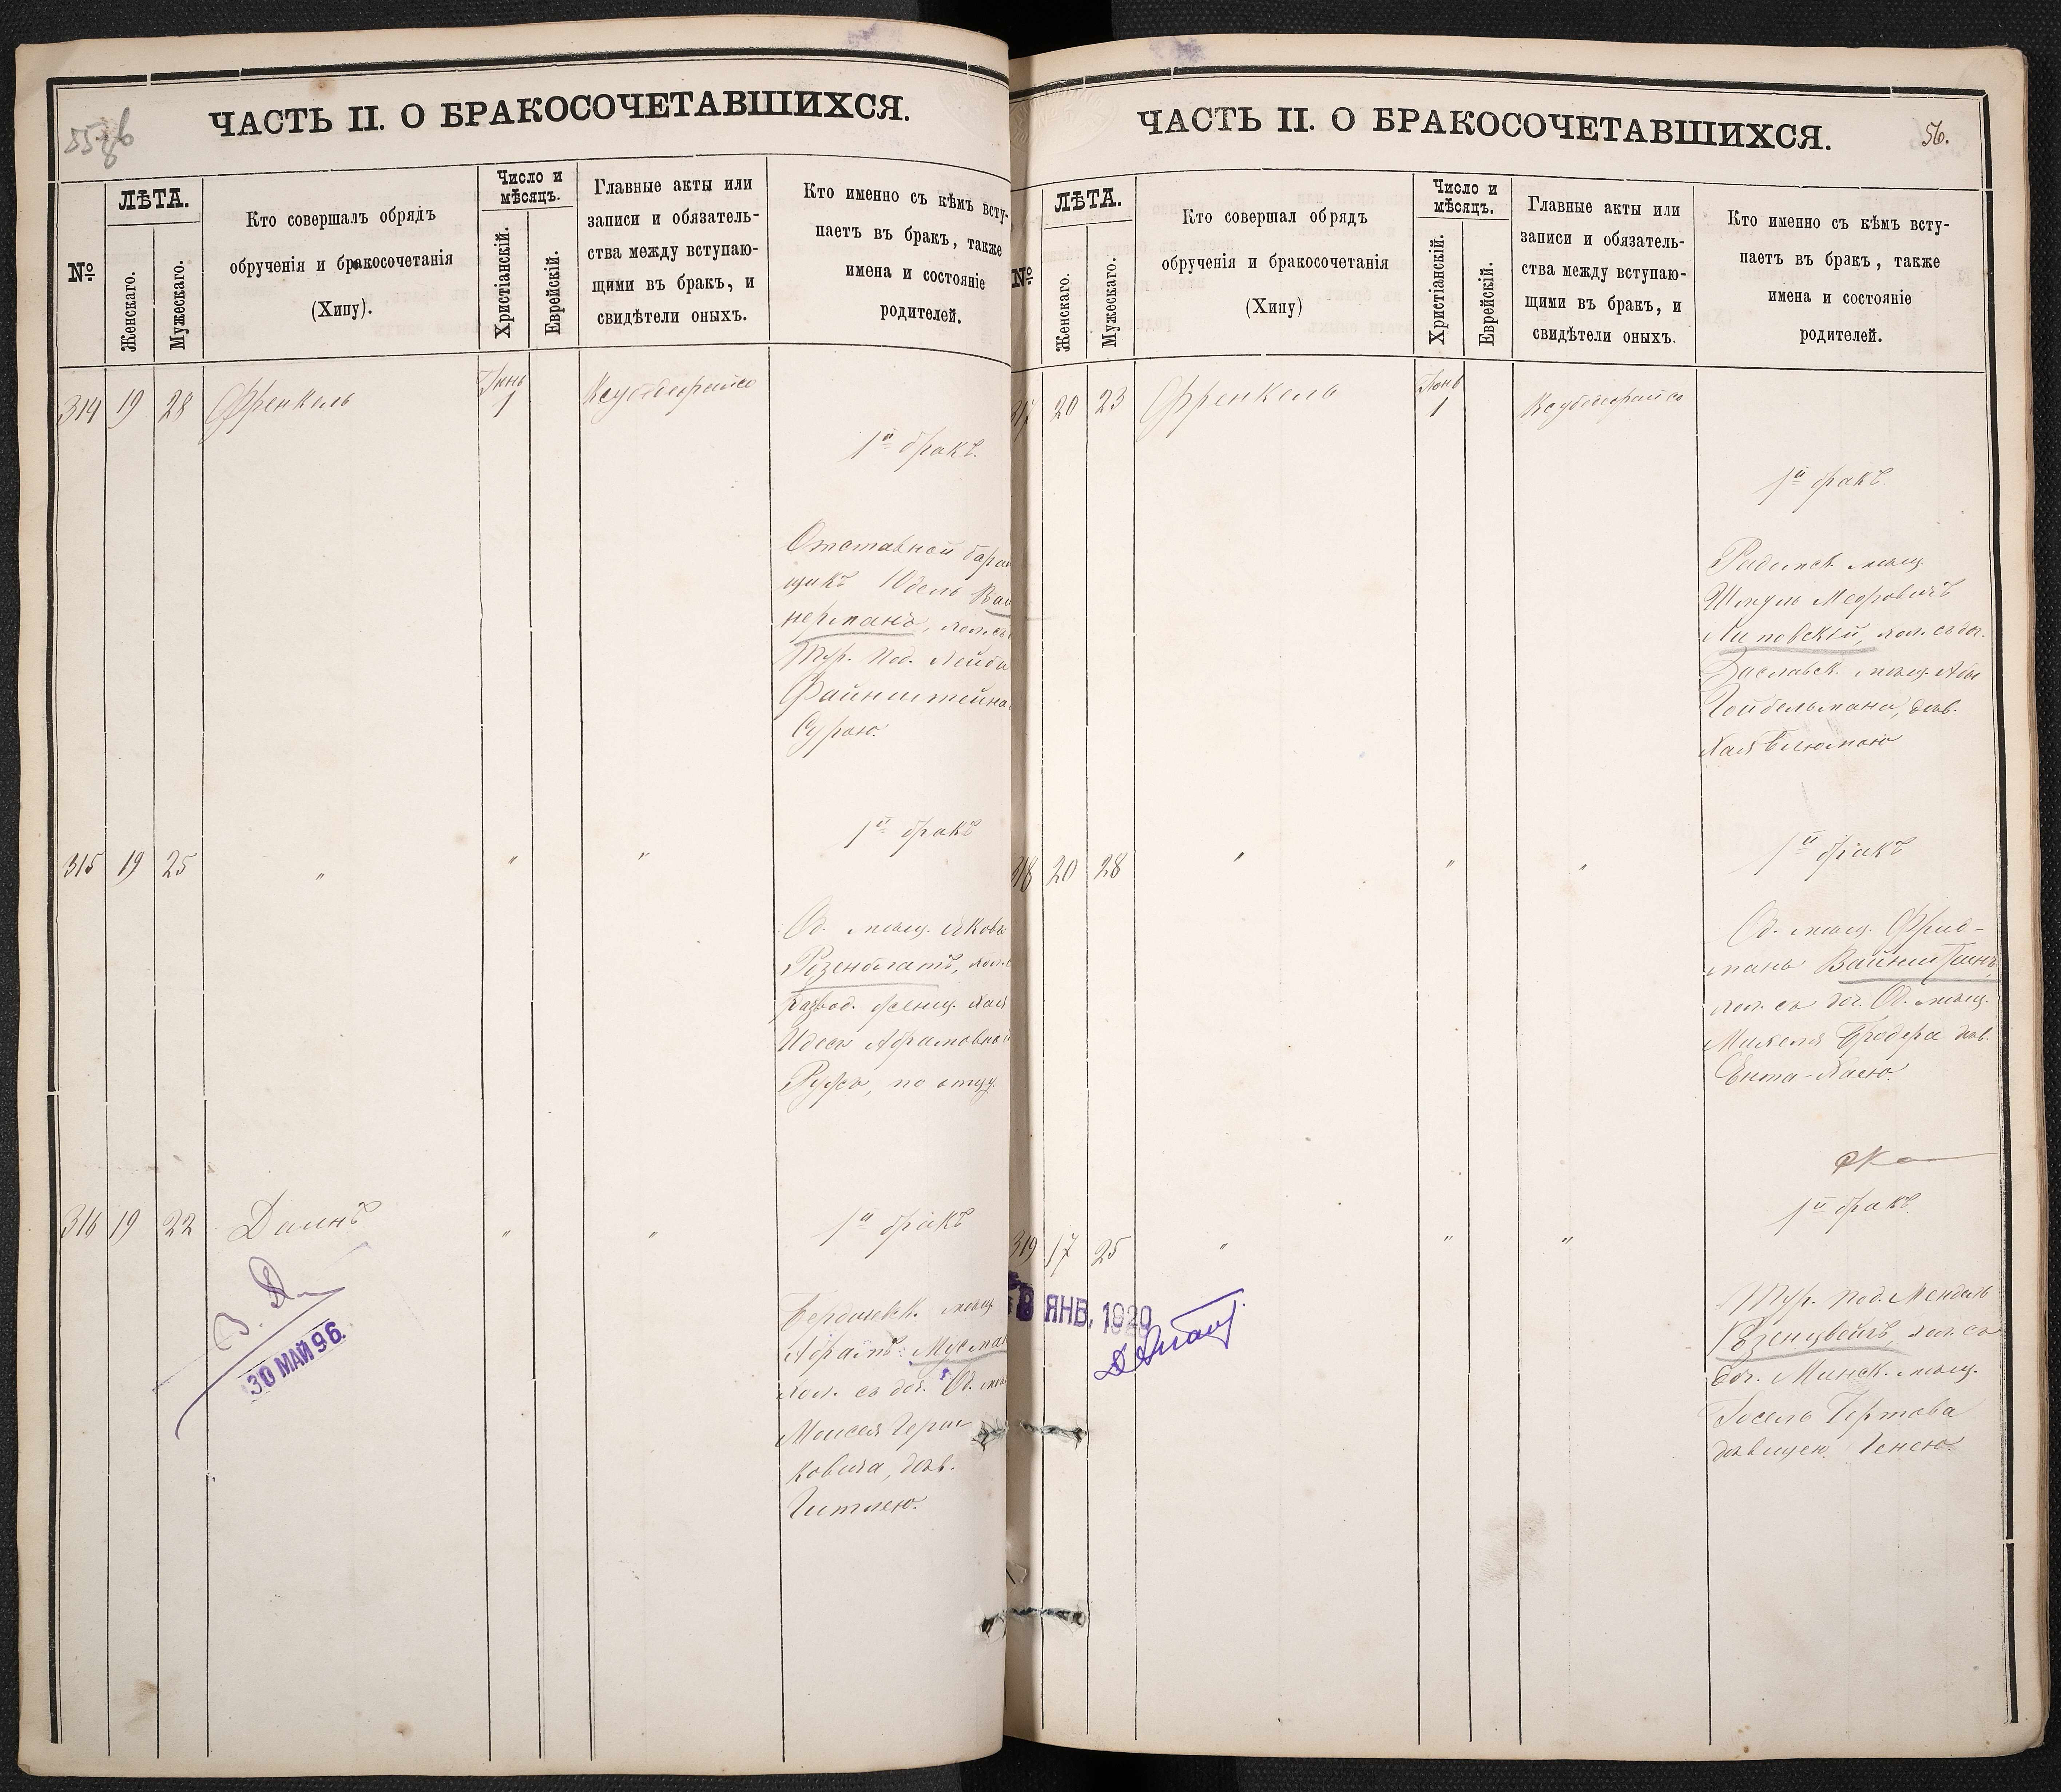 ЧАСТЬ II. О БРАКОСОЧЕТАВШИХСЯ.
№
ЛѢТА.
Женскаго.
Мужескаго.
Кто совершалъ обрядъ
обрученія и бракосочетанія
(Хипу).
Число и
мѣсяцъ.
Христіанскій.
Еврейскій.
Главные акты или
записи и обязатель-
ства между вступаю-
щими въ бракъ, и
свидѣтели оныхъ.
Кто именно съ кѣмъ всту-
паетъ въ бракъ, также
имена и состояніе
родителей.
314 19 28 Френкель Іюнь 1
1й бракъ.
Отставной
щикъ Юдель
нерманъ,
Тур. под. Лейба
Файнштейна
Сурою.
315 19 25 " " "
1й бракъ
Од. мѣщ. Яковъ
Розенблатъ,
развод. женщ. Хая
Идеса Абрамовной
по отцу.
316 19 22 Даинъ " "
1й бракъ
30 МАЙ 96.
Бердичевск. мѣщ.
Абрамъ
хол. съ доч. Од.
Моисея Герш-
ковича, дѣв.
Гитлею.
ЧАСТЬ II. О БРАКОСОЧЕТАВШИХСЯ.
56.
№
ЛѢТА.
Женскаго.
Мужескаго.
Кто совершал обрядъ
обрученія и бракосочетанія
(Хипу)
Число и
мѣсяцъ.
Христіанскій.
Еврейскій.
Главные акты или
записи и обязатель-
ства между вступаю-
щими въ бракъ, и
свидѣтели оныхъ.
Кто именно съ кѣмъ всту-
паетъ въ бракъ, также
имена и состояніе
родителей.
317 20 23 Френкель Іюнь 1
1й бракъ.
мѣщ.
Шмуль Мееровичъ
Липовскій, хол. съ доч.
Заславск. мѣщ.
Гойбельмана, дѣв.
Хая Блюмою
318 20 28 " " "
1й бракъ
Од. мѣщ. Фрид-
манъ Вайнштейнъ,
хол. съ доч. Од. мѣщ.
Михеля Бродера дѣв.
Ента-Хаею.
319 17 25 " " "
1й бракъ.
ЯНВ. 1920
Тур. под. Мендель
Розенцвейгъ, хол. съ
доч. Минск. мѣщ.
Іосель
дѣвицею Генею.